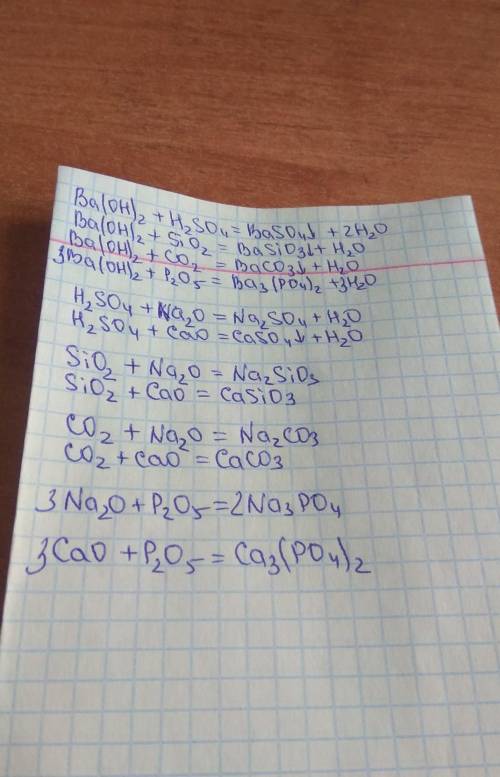 Ba(OH)₂ + H₂SO₄ = BaSO₄↓ + 2H₂O
Ba(OH)₂ + SiO₂ = BaSiO₃↓ + H₂O
Ba(OH)₂ + CO₂ = BaCO₃↓ + H₂O
3Ba(OH)₂ + P₂O₅ = Ba₃(PO₄)₂ + 3H₂O
H₂SO₄ + Na₂O = Na₂SO₄ + H₂O
H₂SO₄ + CaO = CaSO₄↓ + H₂O
SiO₂ + Na₂O = Na₂SiO₃
SiO₂ + CaO = CaSiO₃
CO₂ + Na₂O = Na₂CO₃
CO₂ + CaO = CaCO₃
3Na₂O + P₂O₅ = 2Na₃PO₄
3CaO + P₂O₅ = Ca₃(PO₄)₂